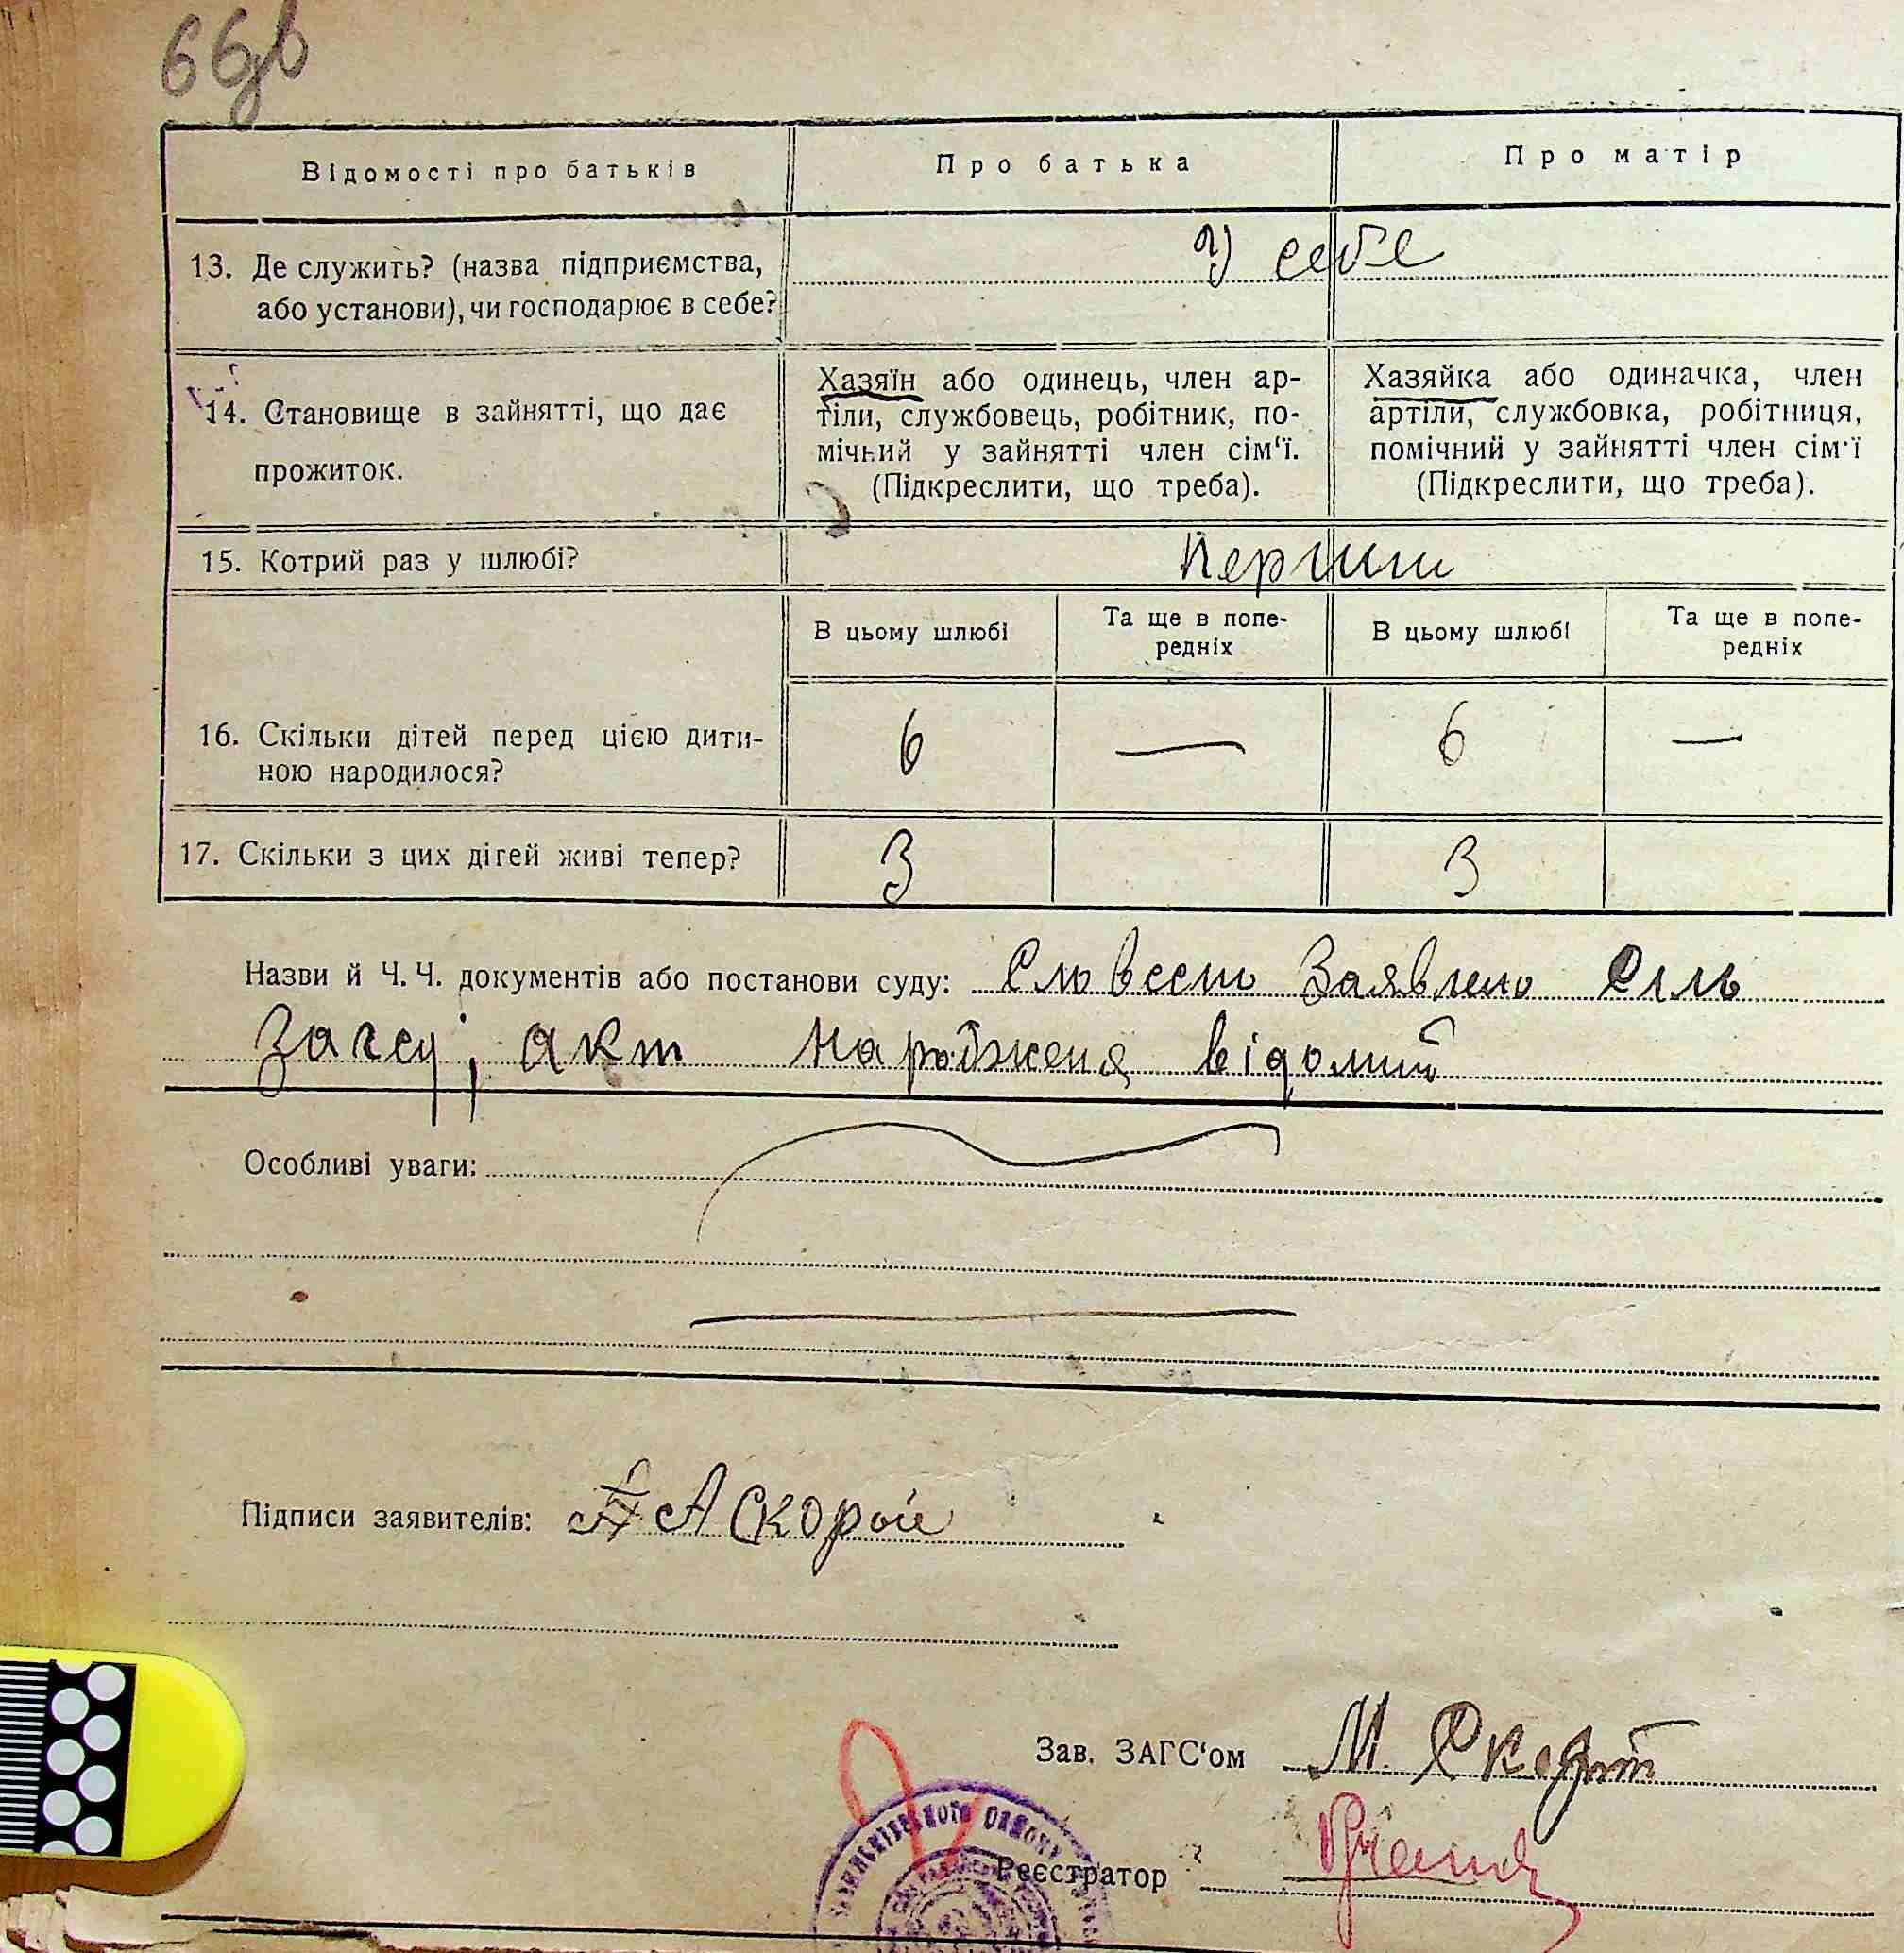 66зв
Відомості про батьків
Про батька
Про матір
13. Де служить? (назва підприємства,
або установи), чи господарює в себе?
У себе
14. Становище в зайнятті, що дає
прожиток.
Хазяїн або одинець, член ар-
тіли, службовець, робітник, по-
мічний у зайнятті член сім‘ї.
(Підкреслити, що треба).
Хазяйка або одиначка, член
артіли, службовка, робітниця,
помічний у зайнятті член сім‘ї
(Підкреслити, що треба).
15. Котрий раз у шлюбі?
Перший
В цьому шлюбі
Та ще в попе-
редніх
В цьому шлюбі
Та ще в попе-
редніх
16. Скільки дітей перед цією дити-
ною народилося?
6 — 6 —
17. Скільки з цих дітей живі тепер?
3 3
Назви й Ч. Ч. документів або постанови суду: Словесно Заявлено Сіль
Загсу; акт народженя відомий
Особливі уваги:
Підписи заявителів: А Скорой
Зав. ЗАГС‘ом М.
Реєстратор
району